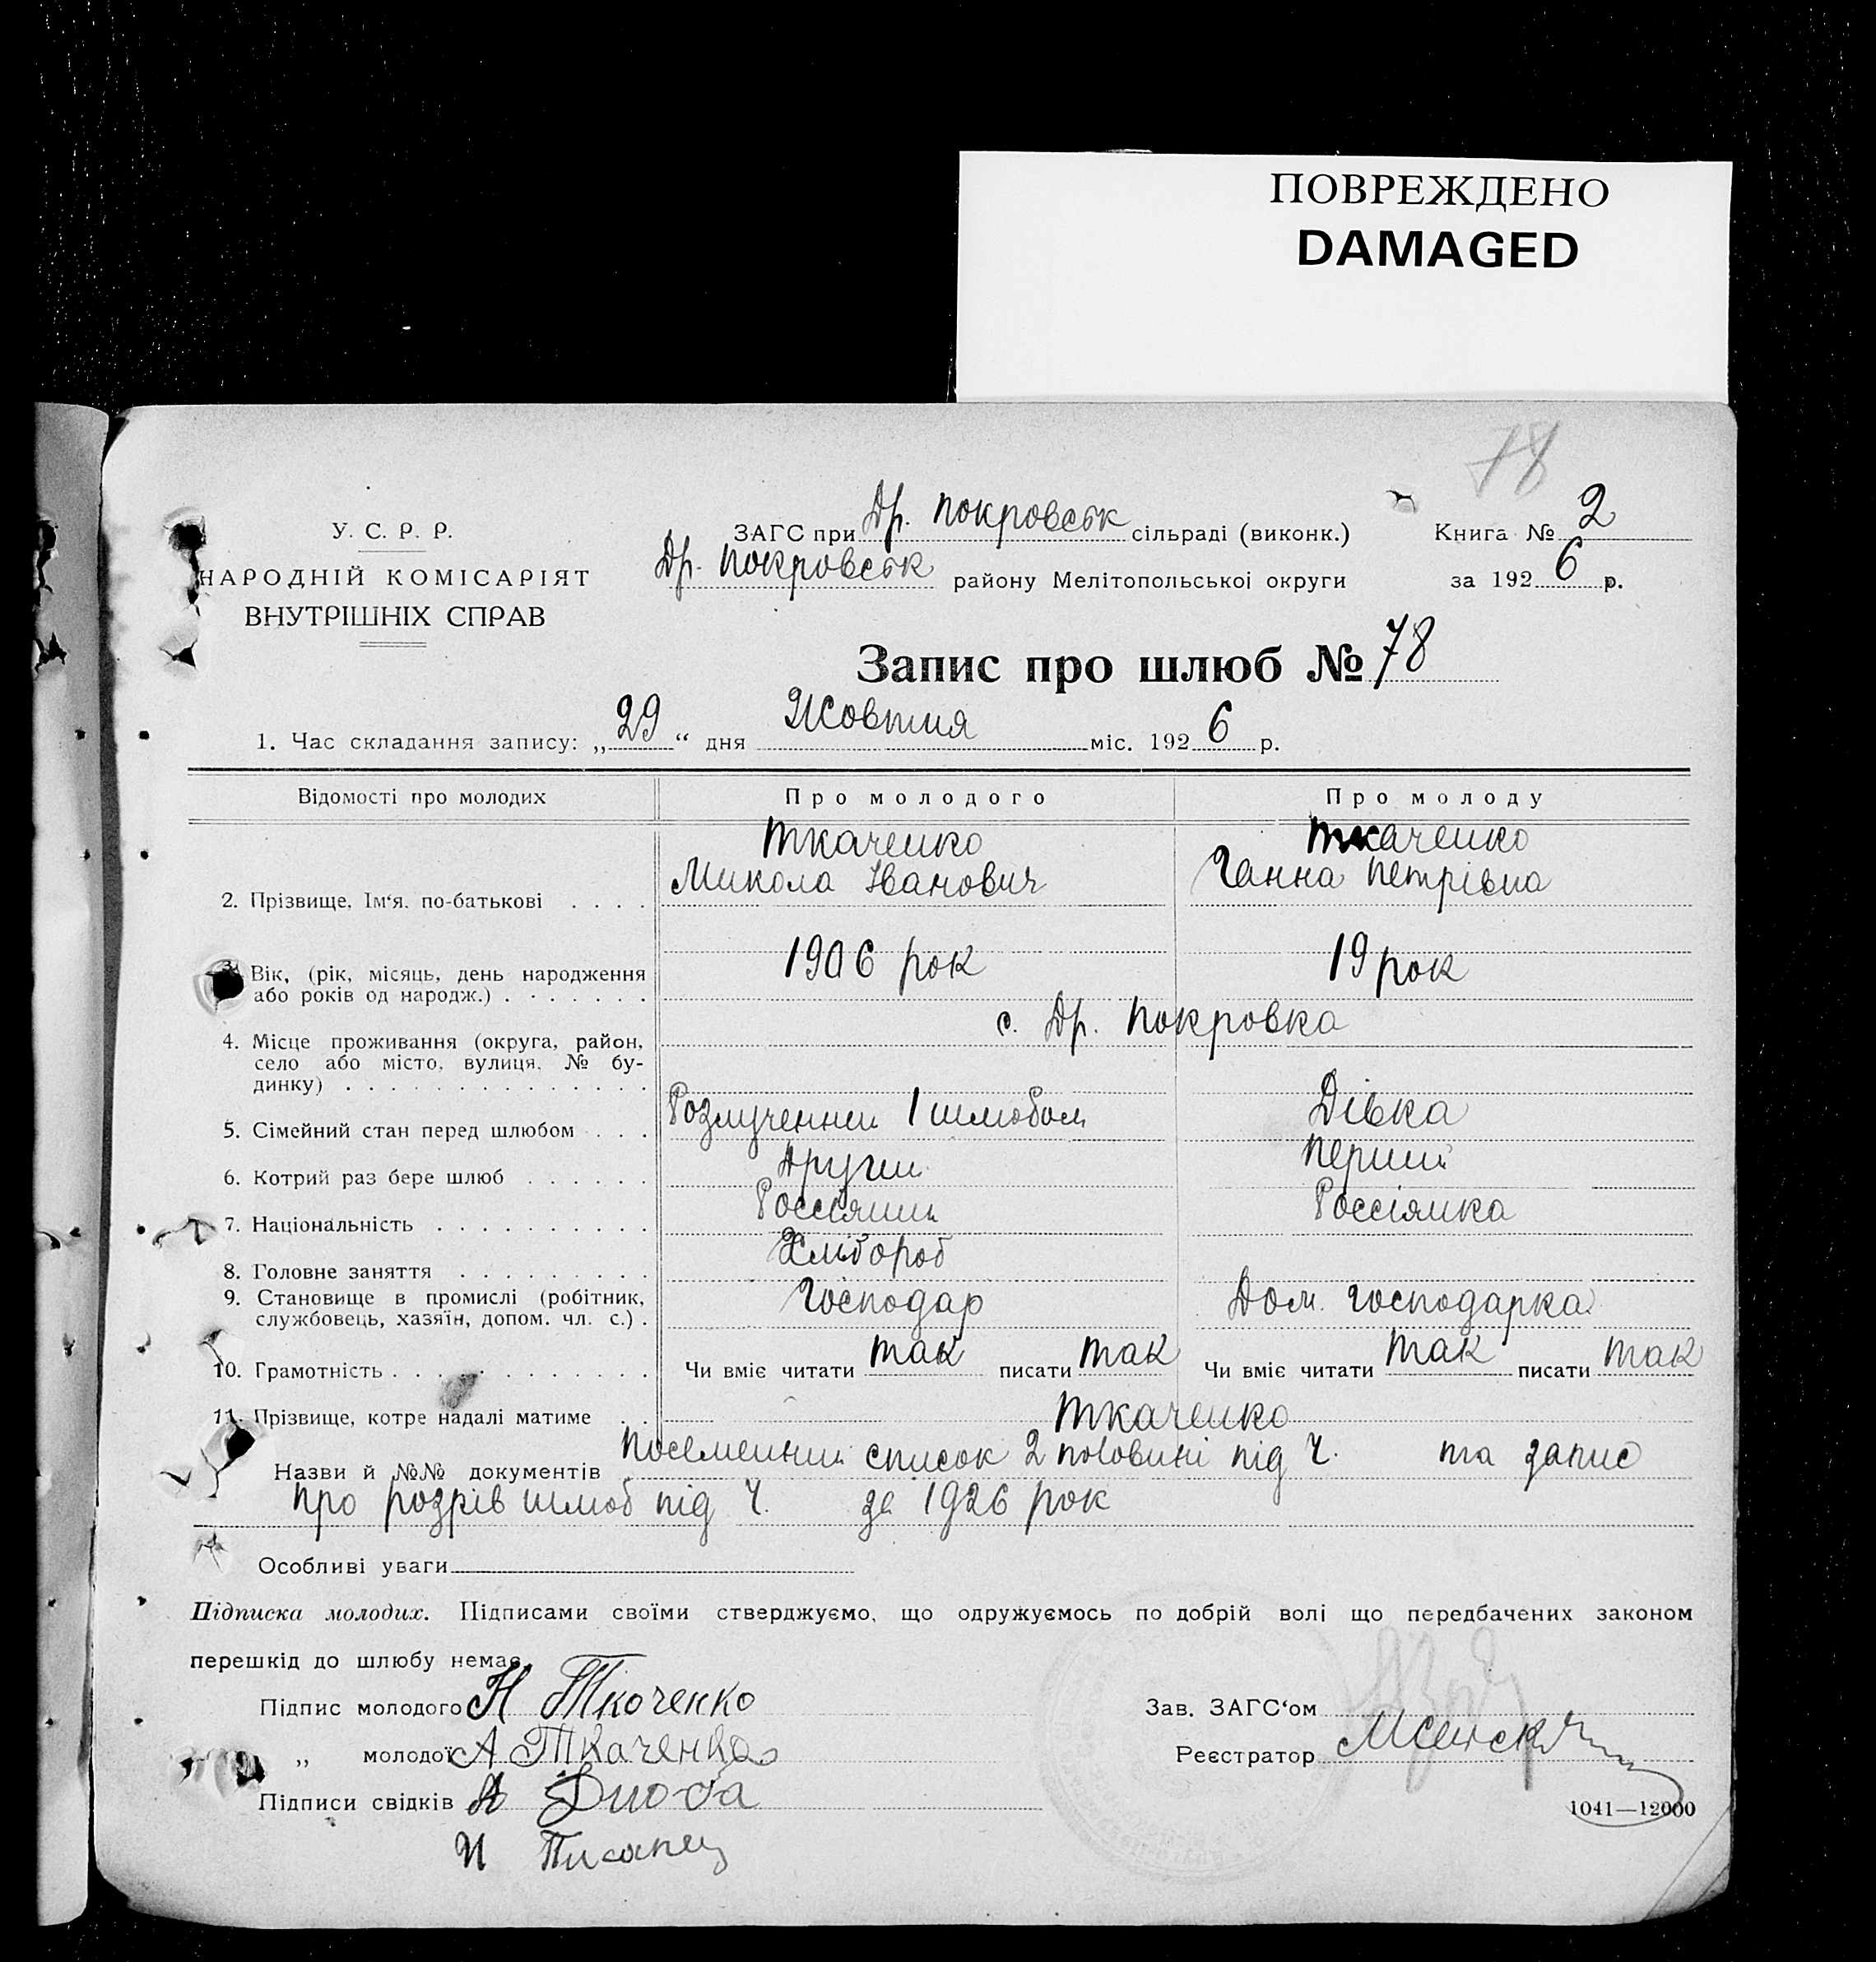 ПОВРЕЖДЕНО
DAMAGED
78
У. С. Р. Р.
НАРОДНІЙ КОМІСАРІЯТ
ВНУТРІШНІХ СПРАВ
ЗАГС при Др. Покровськ сільраді (виконк.)
Книга № 2
Др. Покровськ району Мелітопольської округи
за 1926 р.
Запис про шлюб № 78
1. Час складання запису: „29“ дня Жовтня міс. 1926 р.
Відомості про молодих Про молодого Про молоду
Ткаченко Ткаченко
2. Прізвище, Ім‘я, по-батькові . . . . Микола Іванович Ганна Петрівна
3. Вік, (рік, місяць, день народження 1906 рок 19 рок
або років од народж.) . . . . . . .
с. Др. Покровка
4. Місце проживання (округа, район,
село або місто, вулиця, № бу-
динку) . . . . . . . . . . . . . .
5. Сімейний стан перед шлюбом . . . Розлученний 1 шлюбом Дівка
6. Котрий раз бере шлюб . . . . . . Други Перший
7. Національність . . . . . . . . . . Россіянин Россіянка
8. Головне заняття . . . . . . . . . Хлібороб
9. Становище в промислі (робітник, Господар Дом. господарка
службовець, хазяїн, допом. чл. с.) .
10. Грамотність . . . . . . . . . . . . Чи вміє читати так писати так Чи вміє читати так писати так
11. Прізвище, котре надалі матиме . . Ткаченко
Назви й №№ документів Посемейний список 2 половині під Ч. та запис
про розрів шлюб під Ч. за 1926 рок
Особливі уваги
Підписка молодих. Підписами своїми стверджуємо, що одружуємось по добрій волі що передбачених законом
перешкід до шлюбу немає
Підпис молодого Н Ткоченко
Зав. ЗАГС‘ом
„ молодої А Ткаченко
Реєстратор
Підписи свідків А
1041—12000
И Писанец